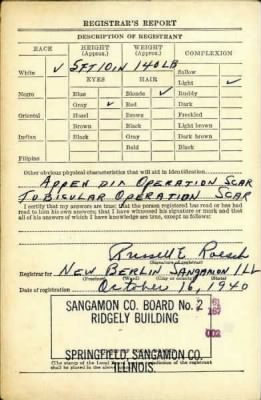 REGISTRAR'S REPORT
DESCRIPTION OF REGISTRANT
RACE HEIGHT (Approx.) WEIGHT (Approx.) COMPLEXION
White ✓ 5 FT 10 IN 140 LB Sallow
EYES HAIR Light ✓
Negro Blue Blonde ✓ Ruddy
Gray ✓ Red Dark
Oriental Hazel Brown Freckled
Brown Black Light brown
Indian Black Gray Dark brown
Bald Black
Filipino
Other obvious physical characteristics that will aid in identification
APPENDIX OPERATION SCAR
OPERATION SCAR
I certify that my answers are true; that the person registered has read or has had
read to him his own answers; that I have witnessed his signature or mark and that
all of his answers of which I have knowledge are true, except as follows:
Russell E Roesch
(Signature of registrar)
Registrar for NEW BERLIN SANGAMON ILL
(Precinct) (Ward) (City or county) (State)
Date of registration October 16, 1940
SANGAMON CO. BOARD No. 2
RIDGELY BUILDING
SPRINGFIELD, SANGAMON CO.
ILLINOIS.